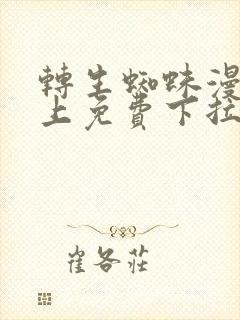 轉生蜘蛛漫
上免費下拉
崔各莊